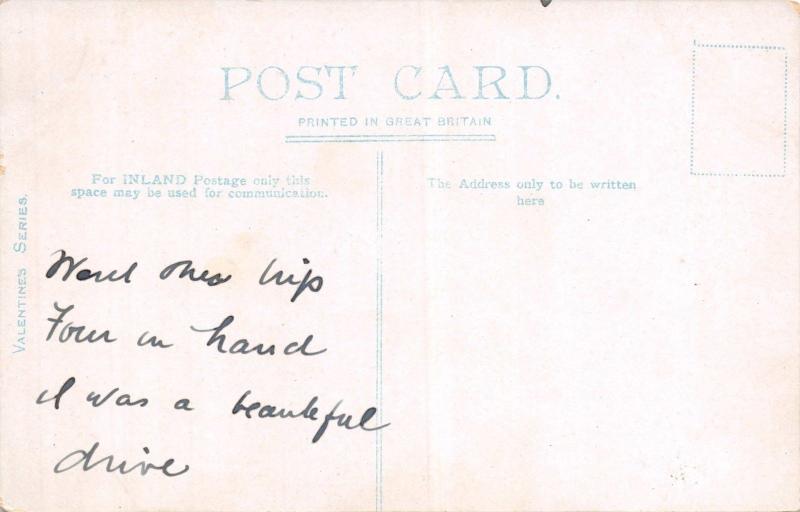 POST CARD.
PRINTED IN GREAT BRITAIN
For INLAND Postage only this
space may be used for communication.
The Address only to be written
here
VALENTINES SERIES.
trip
Four in hand
it was a beauteful
drive